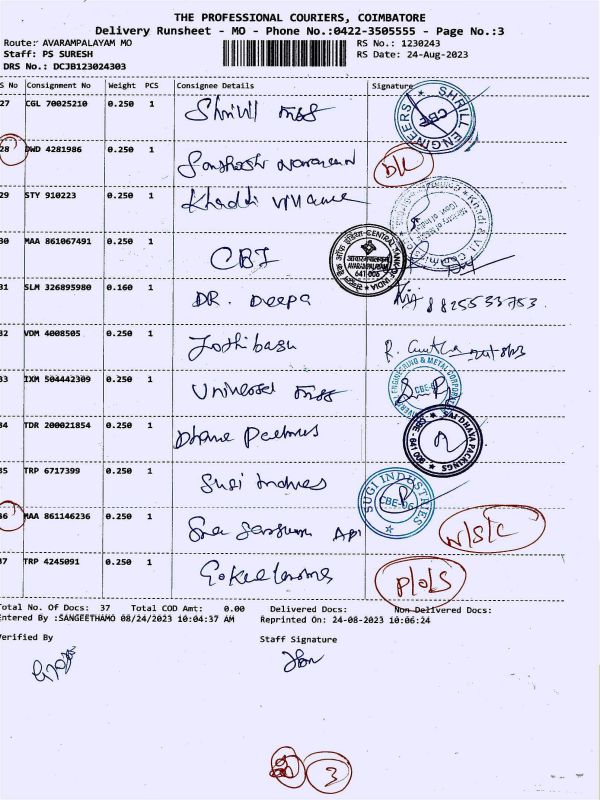 THE PROFESSIONAL COURIERS, COIMBATORE
Delivery Runsheet - MO - Phone No.:0422-3505555 - Page No.:3
Route: AVARAMPALAYAM MO RS No.: 1230243
Staff: PS SURESH RS Date: 24-Aug-2023
DRS No.: DCJB123024303
S No Consignment No Weight PCS Consignee Details Signature
27 CGL 70025210 0.250 1 Shrill
SHRILL ENGINEERS CBE
28 DWD 4281986 0.250 1 DL
29 STY 910223 0.250 1 Khadi
30 MAA 861067491 0.250 1 CBI
CENTRAL BANK OF INDIA AVARAMPALAYAM 641 006
31 SLM 326895980 0.160 1 DR. Deepa 8825533753
32 VDM 4008505 0.250 1 Jothibasu
33 IXM 504442309 0.250 1 Universal
ENGINEERING & METAL CORPORAT
34 TDR 200021854 0.250 1
SAI DHAVA PACKINGS CBE - 641
35 TRP 6717399 0.250 1 Sugi Indus
SUGI INDUSTRIES CBE-06
36 MAA 861146236 0.250 1 N/S/C
37 TRP 4245091 0.250 1 P/O/S
Total No. Of Docs: 37 Total COD Amt: 0.00 Delivered Docs: Non Delivered Docs:
Entered By :SANGEETHAMO 08/24/2023 10:04:37 AM Reprinted On: 24-08-2023 10:06:24
Verified By Staff Signature
3